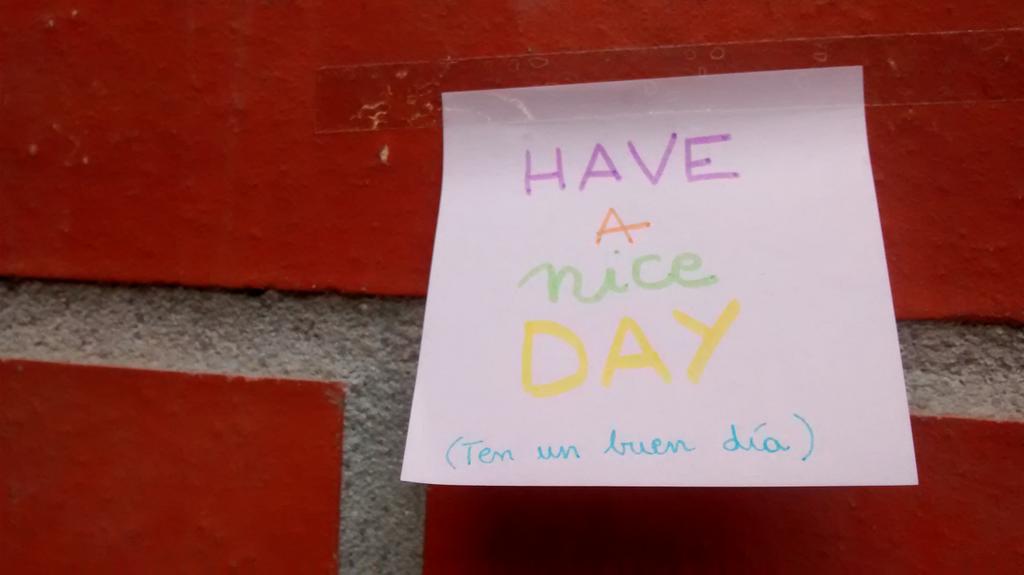 HAVE
A
nice
DAY
(Ten un buen día)